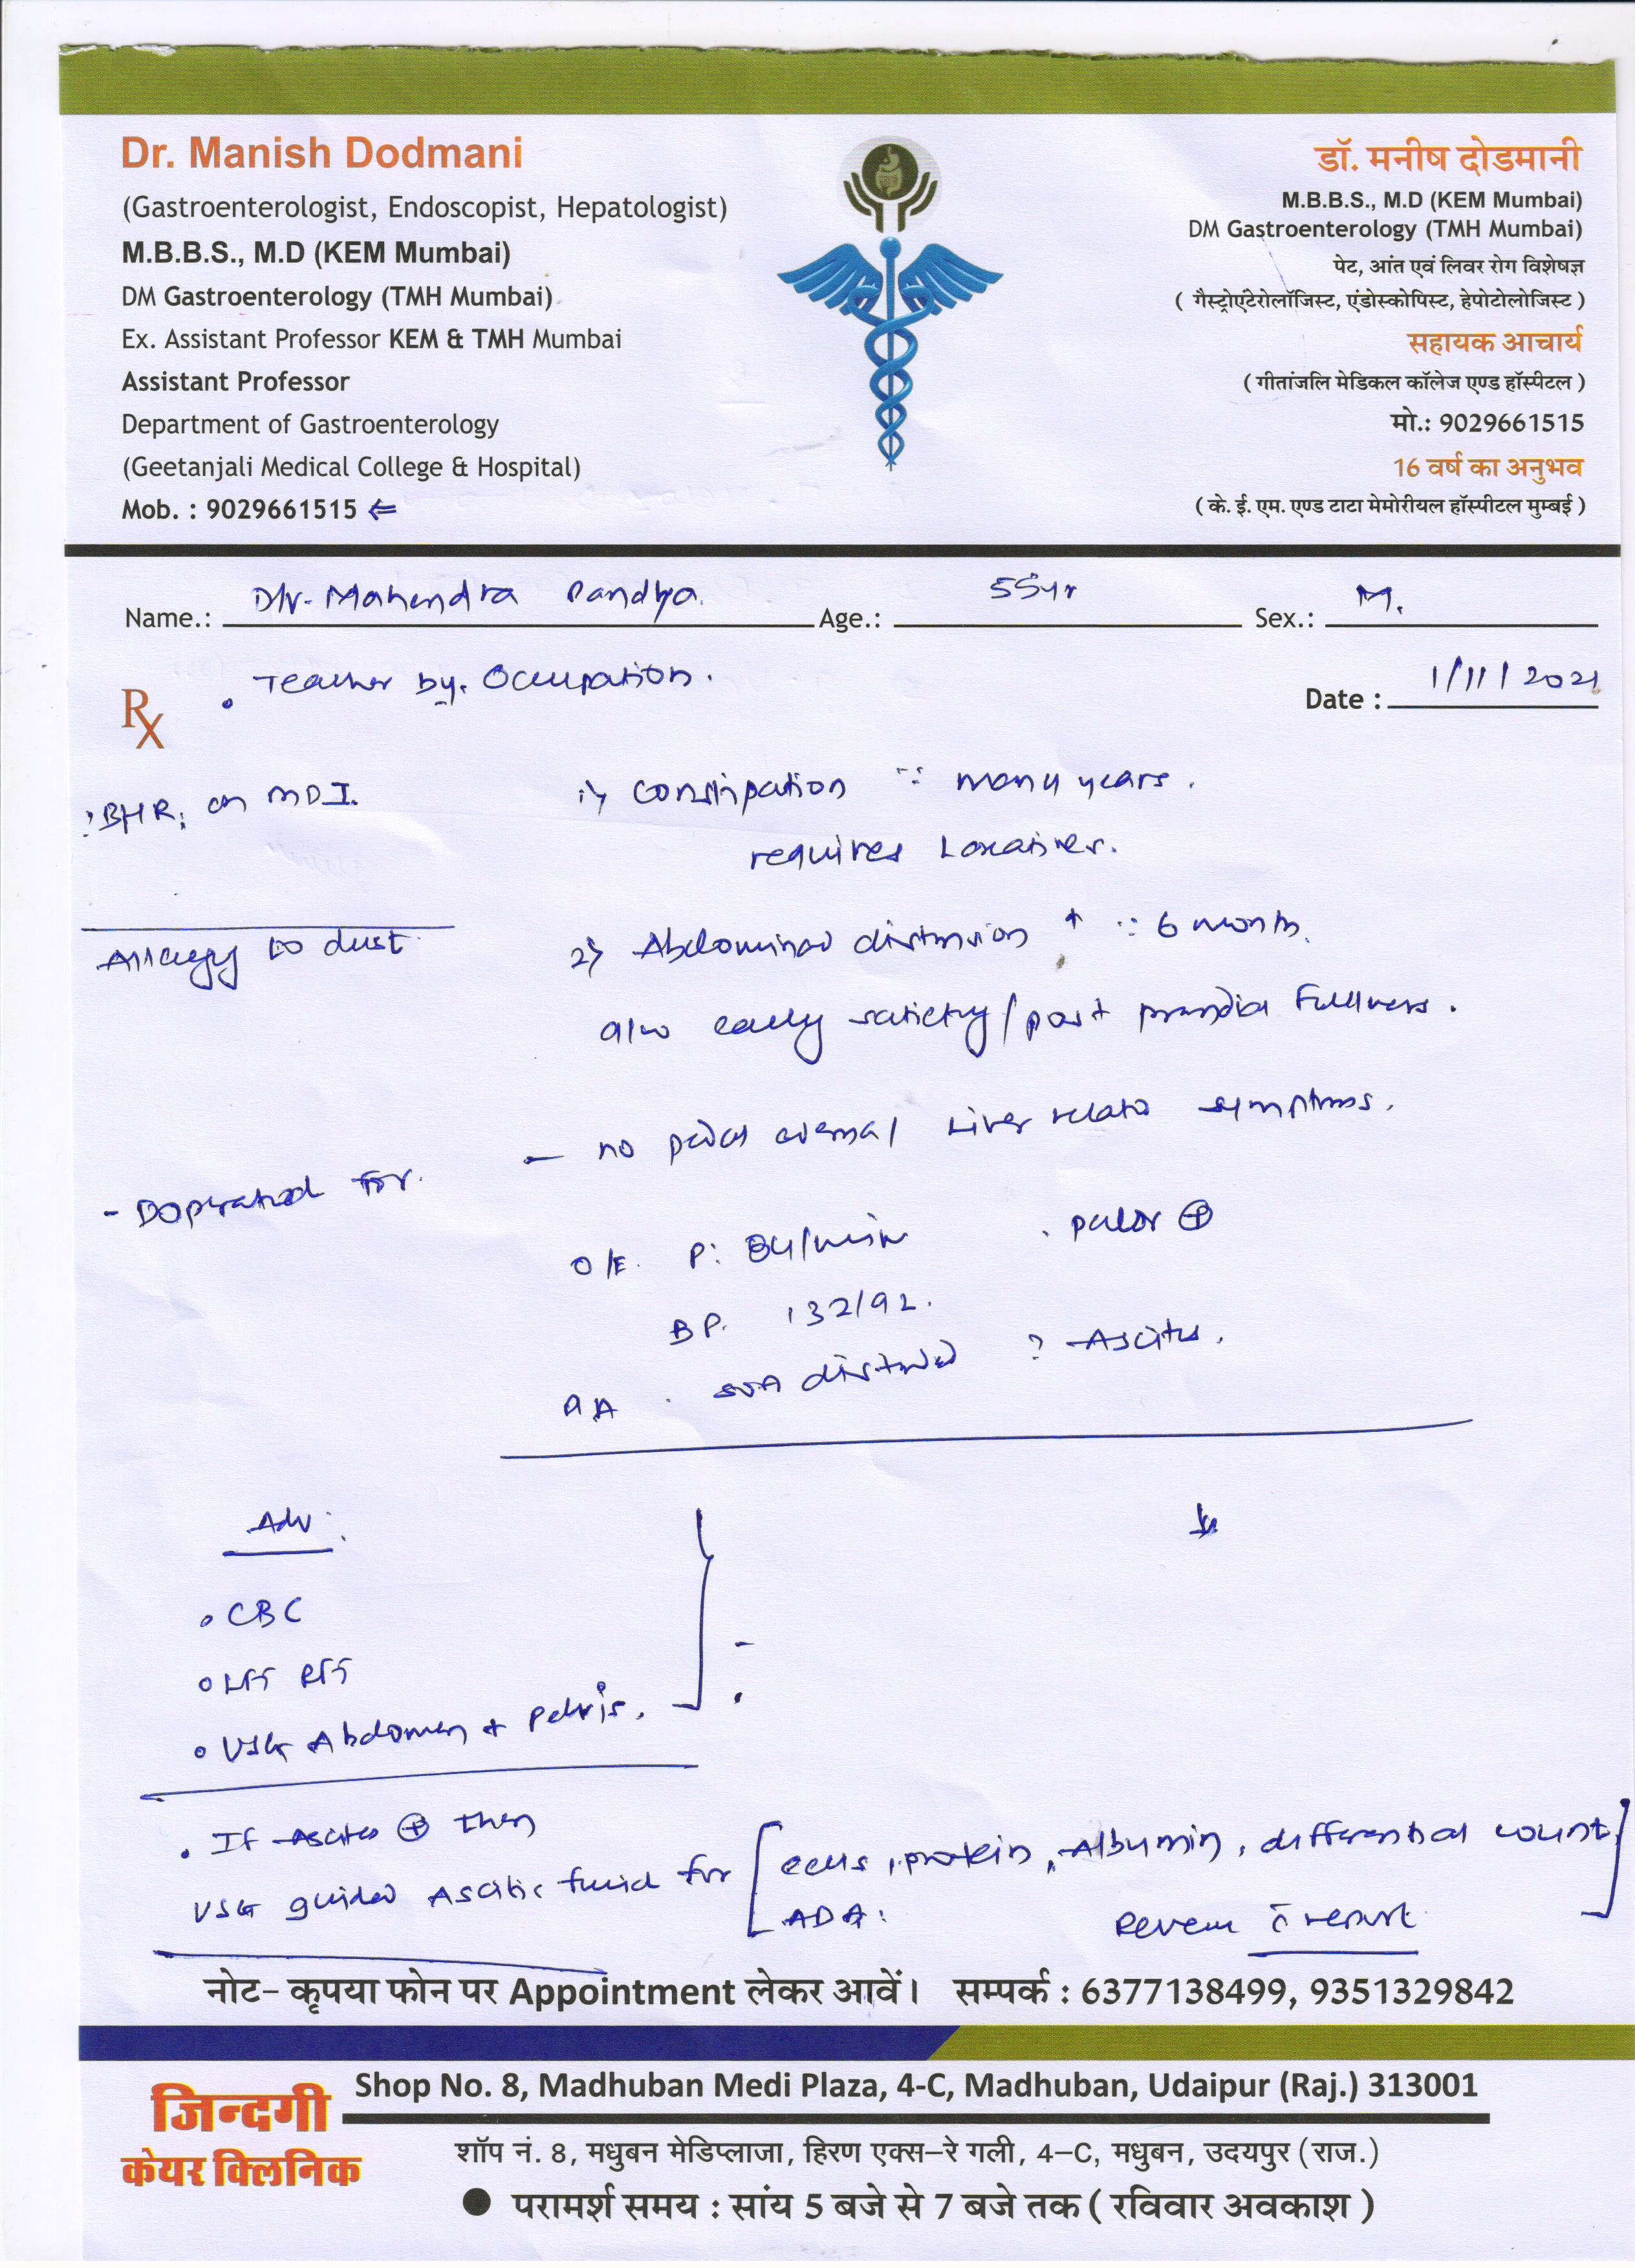 Dr. Manish Dodmani
(Gastroenterologist, Endoscopist, Hepatologist)
M.B.B.S., M.D (KEM Mumbai)
DM Gastroenterology (TMH Mumbai)
Ex. Assistant Professor KEM & TMH Mumbai
Assistant Professor
Department of Gastroenterology
(Geetanjali Medical College & Hospital)
Mob. : 9029661515
डॉ. मनीष दोडमानी
M.B.B.S., M.D (KEM Mumbai)
DM Gastroenterology (TMH Mumbai)
पेट, आंत एवं लिवर रोग विशेषज्ञ
( गैस्ट्रोएंटेरोलॉजिस्ट, एंडोस्कोपिस्ट, हेपोटोलोजिस्ट )
सहायक आचार्य
( गीतांजलि मेडिकल कॉलेज एण्ड हॉस्पीटल )
मो.: 9029661515
16 वर्ष का अनुभव
( के. ई. एम. एण्ड टाटा मेमोरीयल हॉस्पीटल मुम्बई )
Name.: Mahendra Pandya Age.: 55yr Sex.: M.
Rx
• Teacher by Occupation.
Date : 1/11/2021
BHR; on MDI.
1) Constipation ∵ many years.
requires Laxatives.
Allergy to dust
2) Abdominal distension ↑ ∵ 6 month.
also early satiety / post prandial Fullness.
- no pedal edema / Liver related symptoms.
operated for.
O/E. P: 84/min . palor ⊕
BP. 132/92.
distended ? Ascites.
Adv.
• CBC
• LFT RFT
• USG Abdomen + Pelvis.
• If Ascites ⊕ then
USG guided Ascitic fluid for [ cells, protein, Albumin, differential count,
ADA. ]
Review c̄ report
नोट– कृपया फोन पर Appointment लेकर आवें। सम्पर्क : 6377138499, 9351329842
जिन्दगी
केयर क्लिनिक
Shop No. 8, Madhuban Medi Plaza, 4-C, Madhuban, Udaipur (Raj.) 313001
शॉप नं. 8, मधुबन मेडिप्लाजा, हिरण एक्स–रे गली, 4–C, मधुबन, उदयपुर (राज.)
● परामर्श समय : सांय 5 बजे से 7 बजे तक ( रविवार अवकाश )